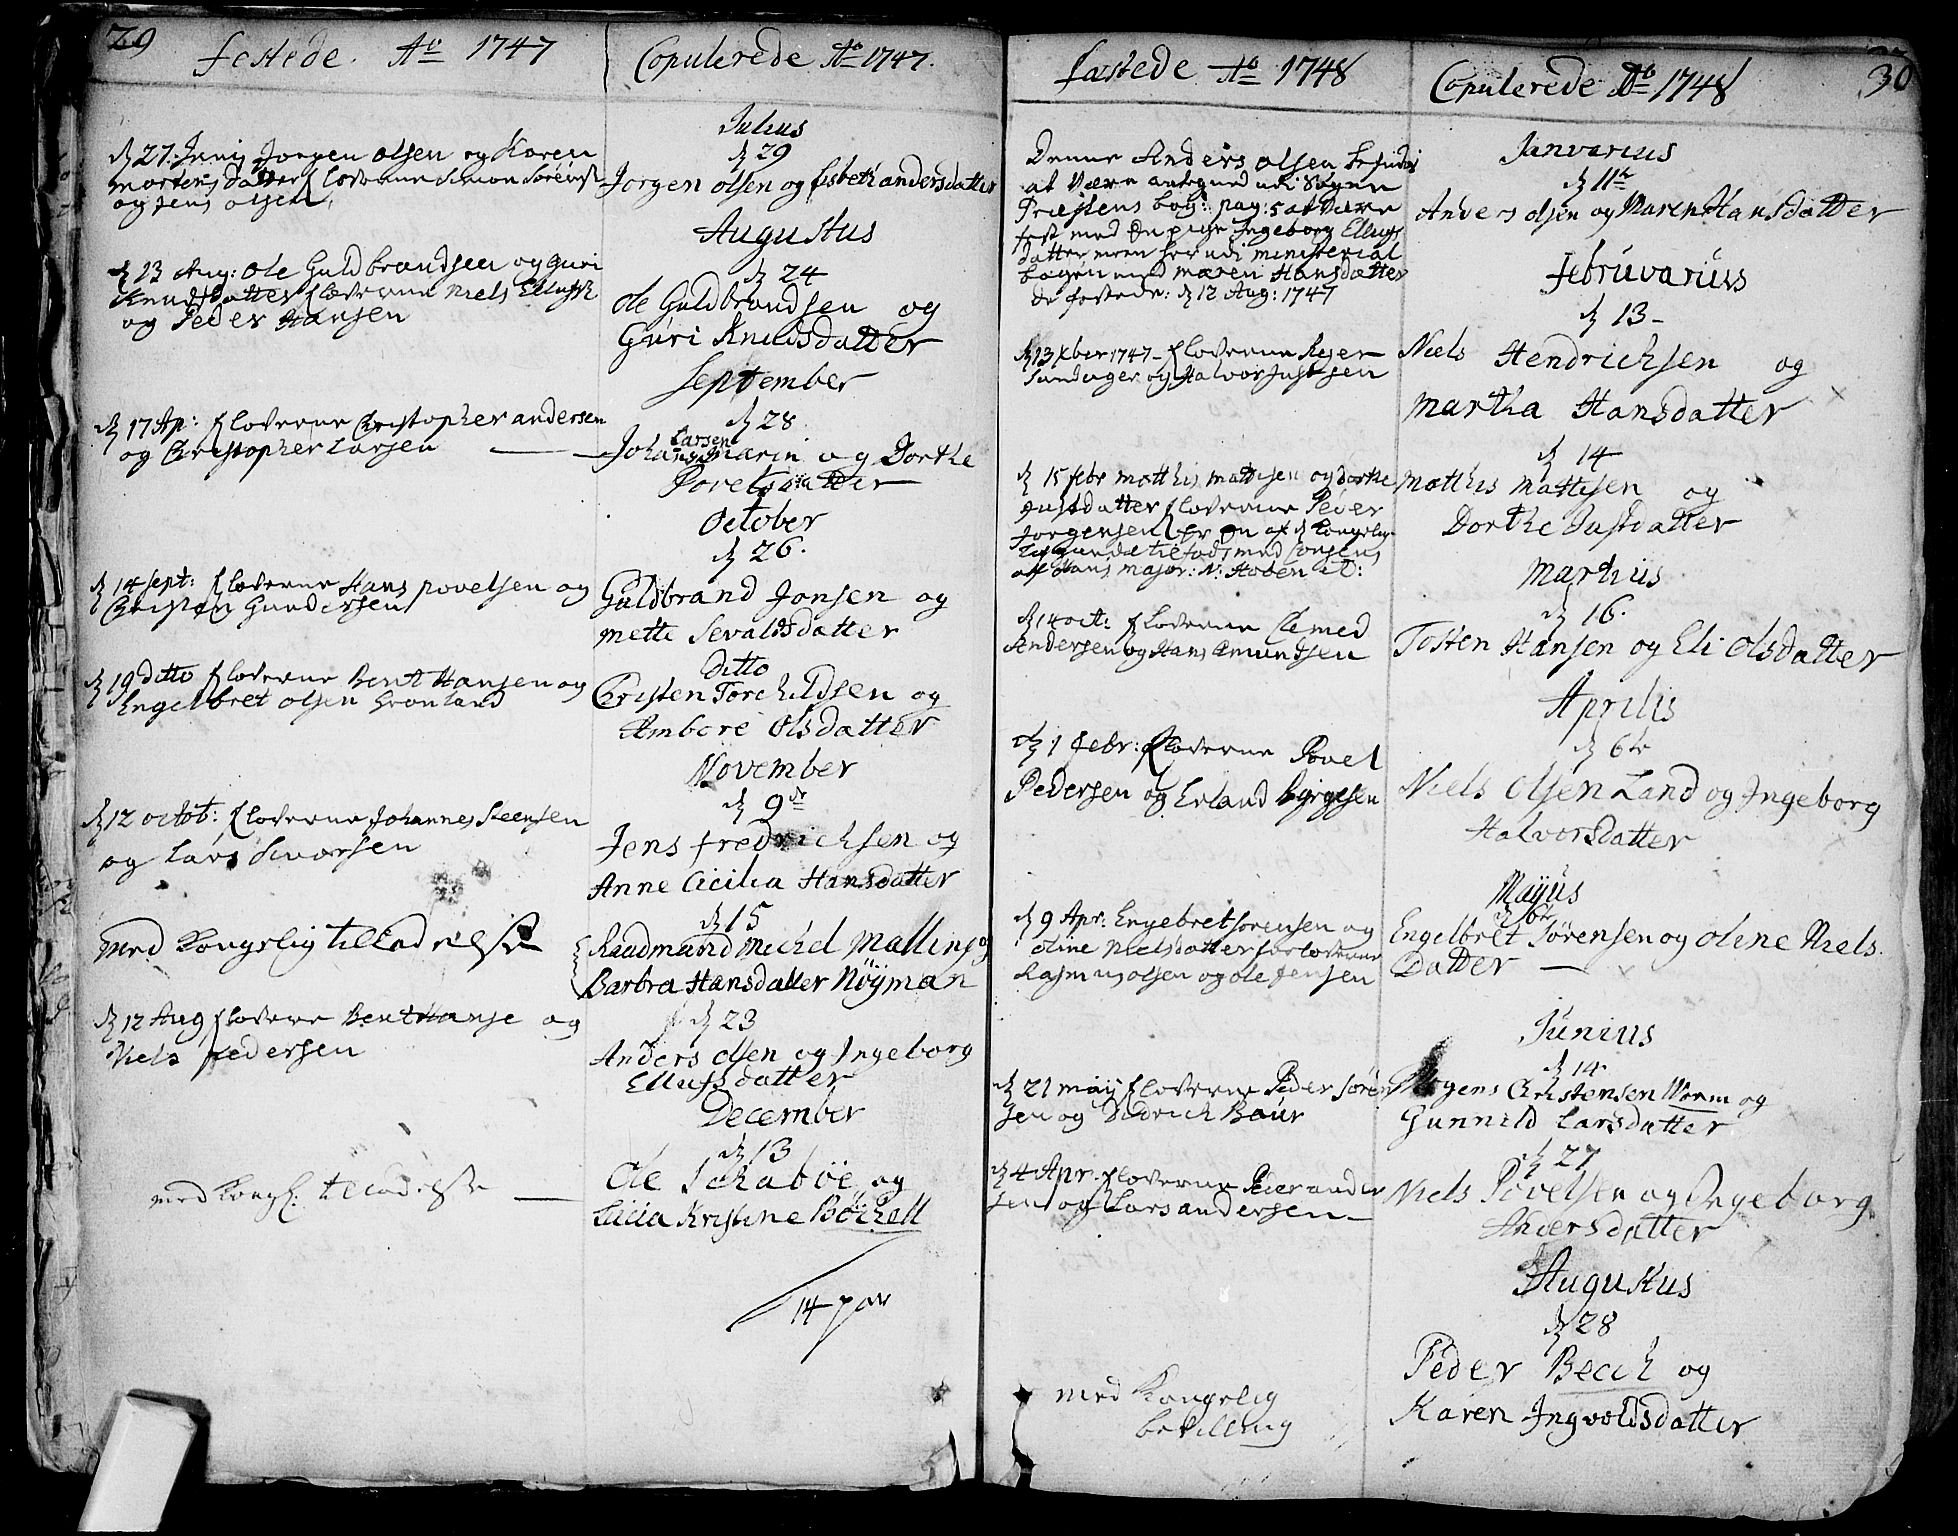 29
festede. Ao 1747
d 27. Junij Jorgen olsen og Karen
Mortens datter floverne Simon Sørens:
og Jens olsen,
d 13 Aug: Ole Guldbrandsen og Guri
Knudsdatter floverne Niels Ellefs:
og Peder Hansen
d 17 Ap: floverne Christopher andersen
og Christopher Larsen
d 14 sept: floverne Hans povelsen og
Christen Gundersen
d 19 ditto floverne Bent Hansen og
Engelbret olsen Grønland
d 12 octob: floverne Johannes Steensen
og Lars Simorsen
med Kongelig tilladelse
d 12 Aug floverne Bent Hanse og
Niels Pedersen
med Kongl: tilladelse
Copulerede Ao 1747.
Julius
d 29
Jorgen olsen og Lisbeth andersdatter
Augustus
d 24
Ole Guldbrandsen og
Guri Knudsdatter
September
d 28
Johan Larsen Marin og Dorthe
Povelsdatter
October
d 26.
Guldbrand Jonsen og
Mette Sevaldsdatter
ditto
Christen Torchildsen og
Ambore Olsdatter
November
d 9de
Jens fredrichsen og
Anne Cicilia Hansdatter
d 15
Raadmand Michel Malling og
Barbra Hansdatter Nöyman
d 23
Anders olsen og Ingeborg
Ellufsdatter
December
d 13
Ole Schaböe og
Licia Kristine Böchell
14 par
fæstede Ao 1748
Denne Anders olsen befindes
at være antegned udi Sogne
Præstens bog: pag: 5 at være
fest med En pige Ingeborg Ellufs
datter men her udi ministerial
bogen med Maren Hansdatter
de festede: d 12 Aug: 1747
d 13 xber 1747 floverne Rejer
Sandager og Halvor Justsen
d 15 febr Matthis Mattisen og dorthe
Justdatter floverne Peder
Jorgensen
af Hans Major:
d 14 oct: floverne Clemed
Andersen og Hans Amundsen
d 1 Febr: floverne Povel
Pedersen og Erland Byrgesen
d 9 Apr: Engebret sorensen og
Oline Nielsdatter forloverne
Rasmus olsen og ole Jensen
d 21 may floverne Peder Søren
sen og Didrich Baur
d 4 Apr. floverne Peder ander
sen og Lars andersen
med Kongelig
bevilling
30
Copulerede Ao 1748
Janvarius
d 11te
Anders olsen og Maren Hansdatter
Februvarius
d 13
Niels Hendrichsen og
Martha Hansdatter
d 14
Matthis Mattisen og
Dorthe Justdatter
Martius
d 16.
Tosten Hansen og Eli Olsdatter
Aprilis
d 6te
Niels Olsen Land og Ingeborg
Halvorsdatter
Majus
d 6te
Engelbret Sørensen og Oline Niels
Datter
Junius
d 14
Mogens Christensen Worm og
Gunnild Larsdatter
d 27
Niels Povelsen og Ingeborg
Andersdatter
Augustus
d 28
Peder Bech og
Karen Ingvoldsdatter